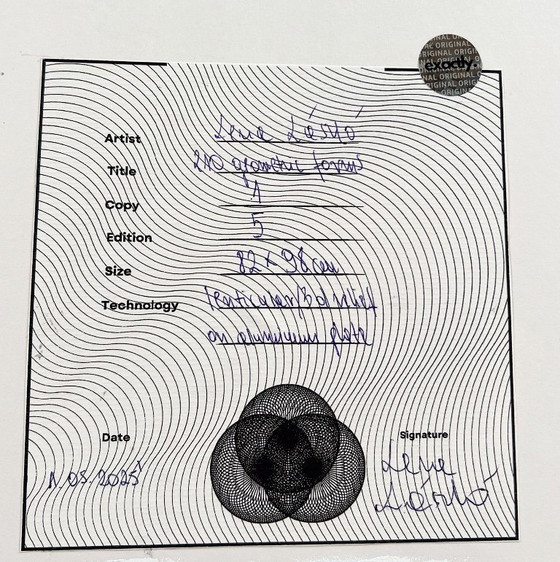 exactly.
ORIGINAL
Artist Lena László
Title 210 geometric forms
Copy 1
Edition 5
Size 82 x 98 cm
Technology lenticular/3d relief
on aluminium plate
Date
1.05.2025
Signature
Lena
László